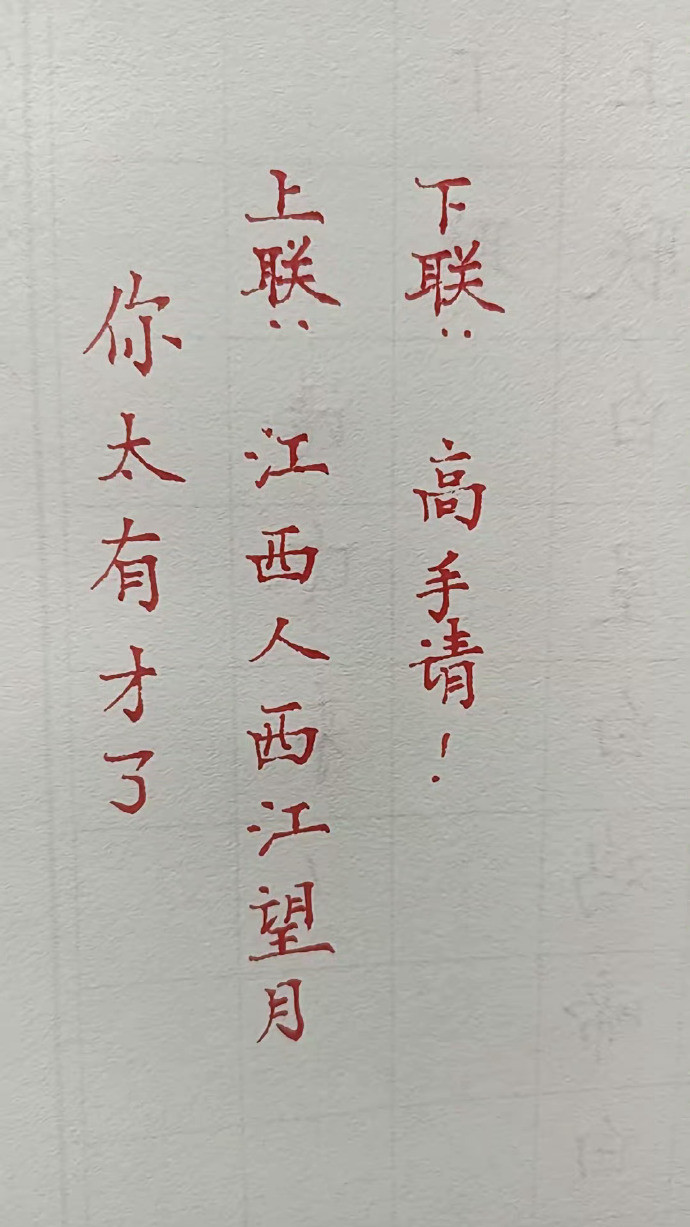 下联：高手请！
上联：江西人西江望月
你太有才了